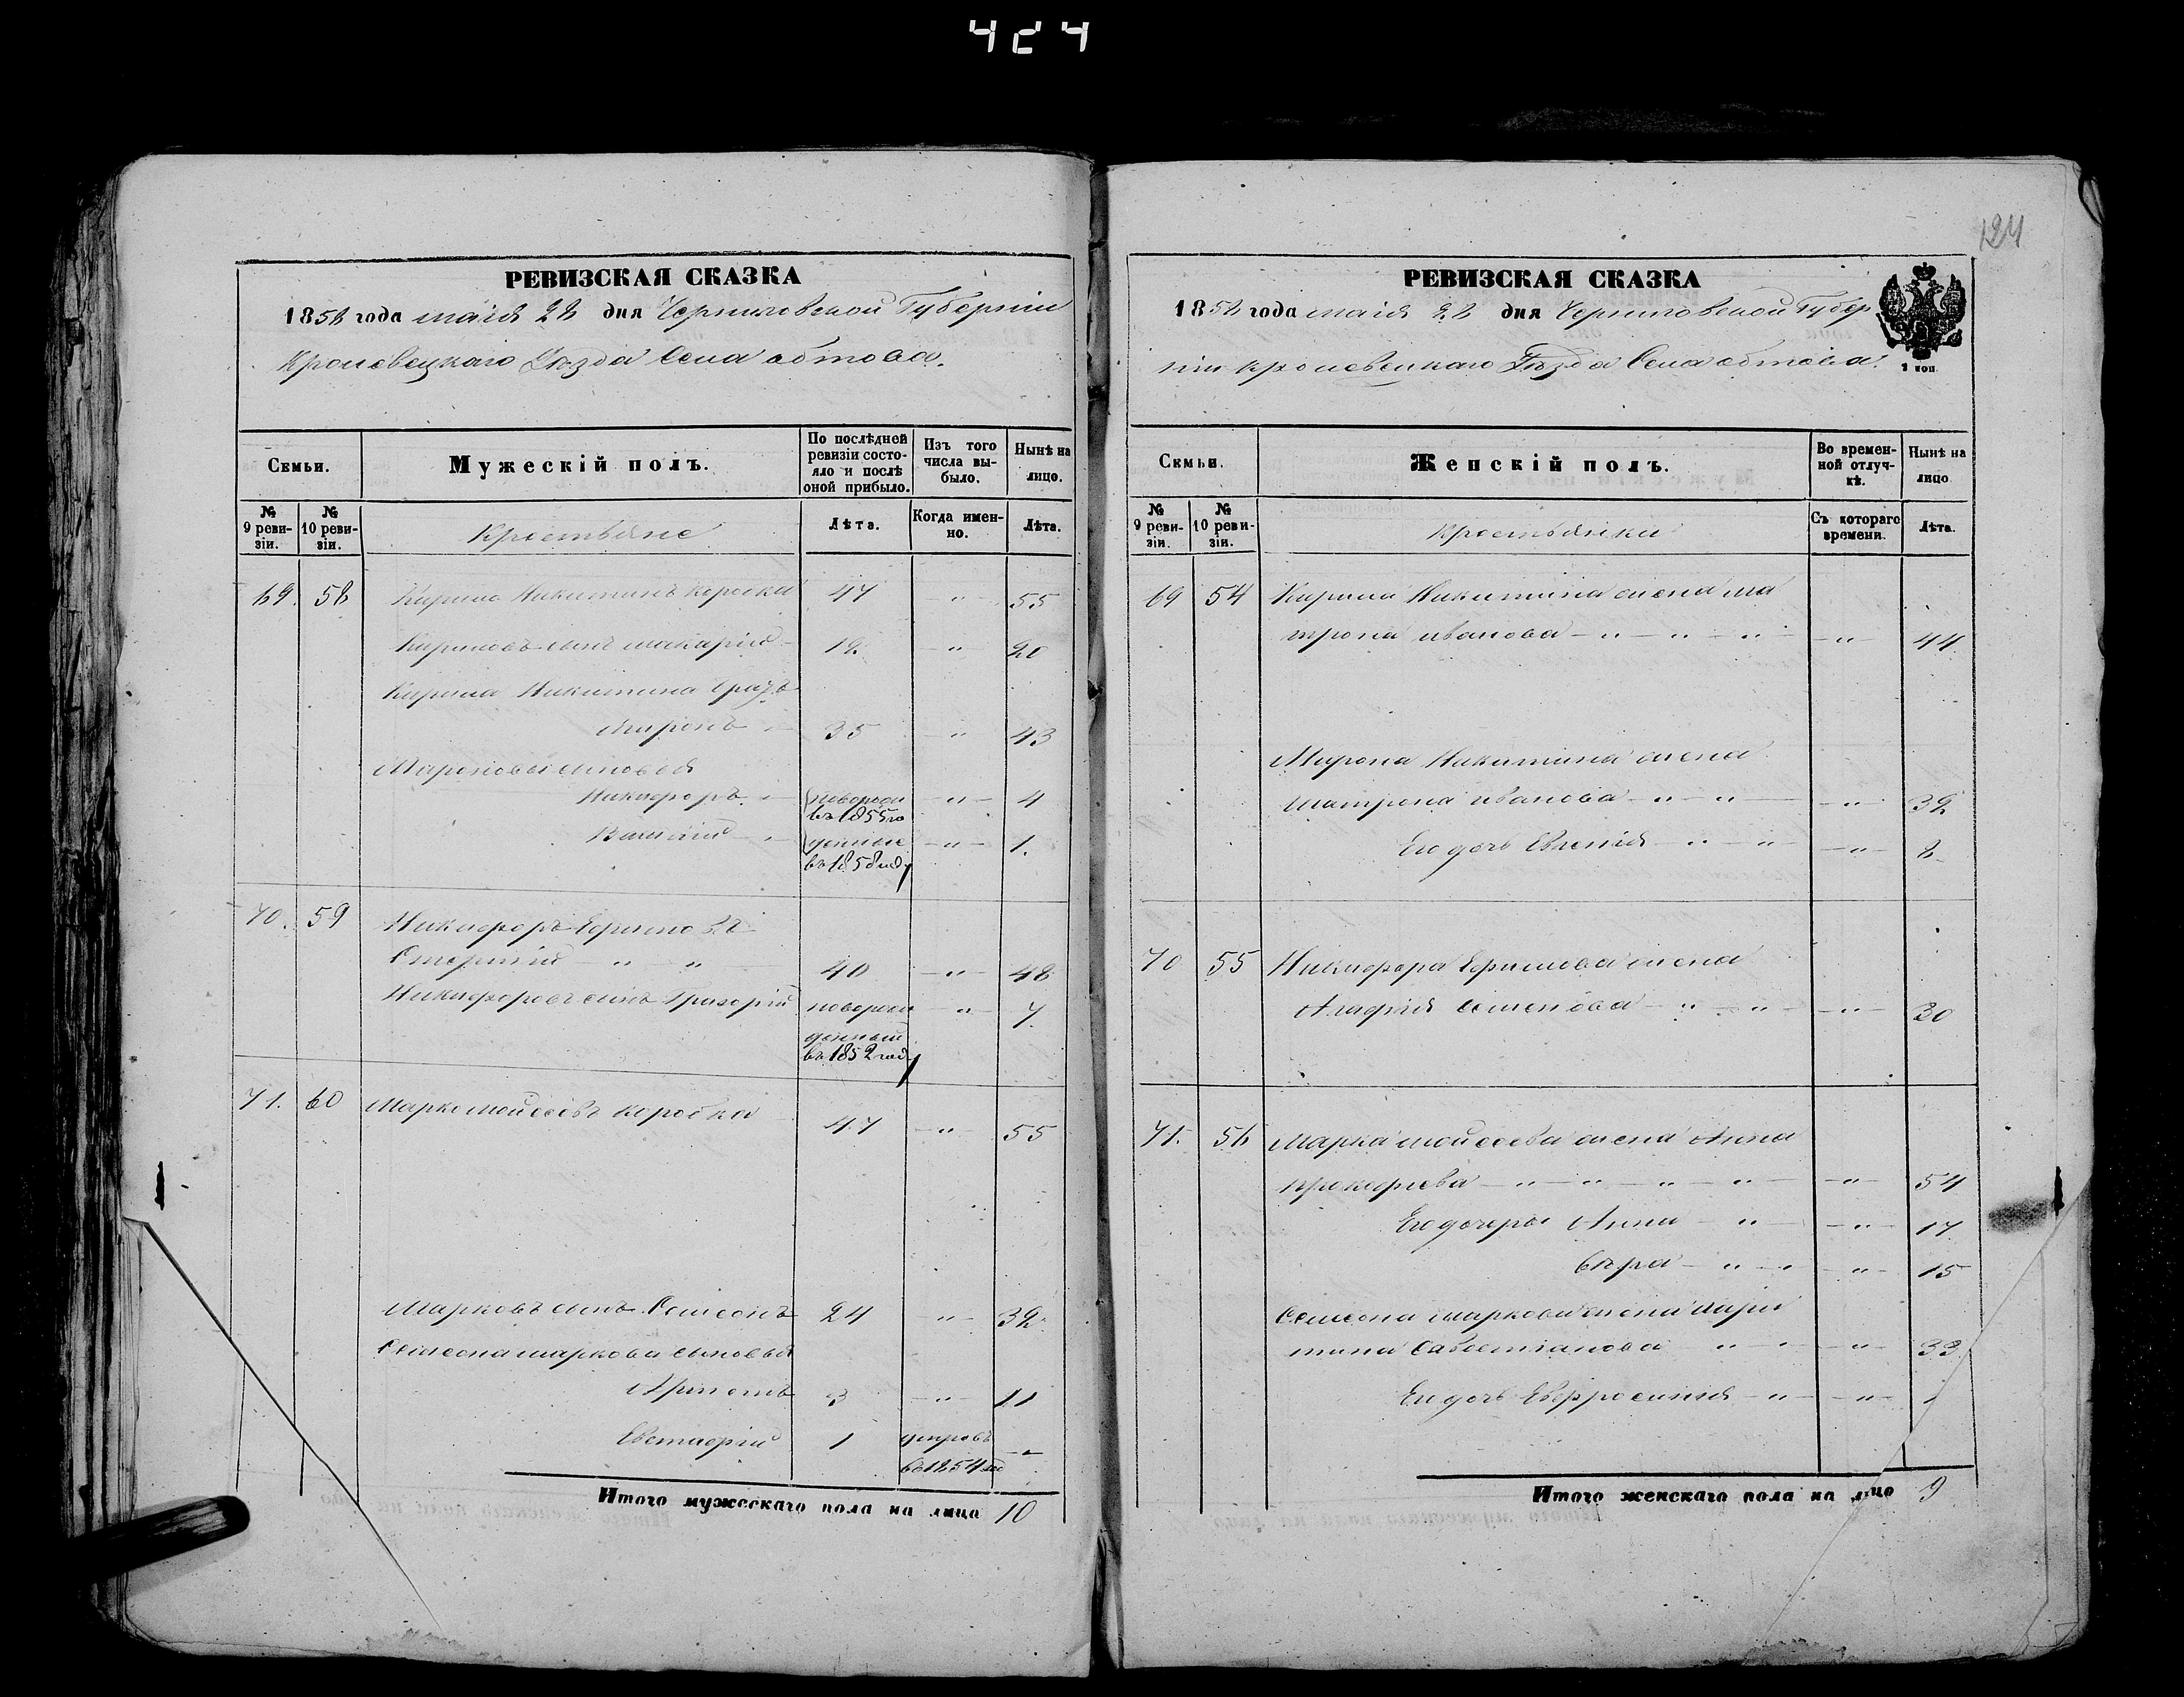 424
РЕВИЗСКАЯ СКАЗКА
1858 года маія 28 дня Черниговской Губерніи
Кролевецкаго Уѣзда Села обтова.
Семьи.
Мужескій полъ.
По послѣдней ревизіи состояло и послѣ оной прибыло.
Изъ того числа выбыло.
Нынѣ на лицо.
№ 9 ревизіи.
№ 10 ревизіи.
Крестьяне
Лѣта.
Когда именно.
Лѣта.
69. 58 Кирило Никитинъ Коробка 47 " 55
Кириловъ сынъ макарій 12 " 20
Кирила Никитина братъ
Миронъ " 35 " 43
Мироновы сыновья
Никифоръ " новорож " 4
въ 1855 го
Василій " денные " 1.
въ 1858 году
70. 59 Никифоръ Ефимовъ
" " 40 " 48
Никифоровъ сынъ Григорій новорож " 7.
денный
въ 1852 году
71. 60 Марко моисеевъ коробка 47 " 55
Марковъ сынъ Семенъ 24 " 32
Семена маркова сыновья
3 " 11
Евстафій 1 умеръ "
въ 1854 год
Итого мужескаго пола на лицо 10
124
РЕВИЗСКАЯ СКАЗКА
1858 года маія 28 дня Черниговской Губер
ніи кролевецкаго Уѣзда Села обтова.
1 коп.
Семьи.
Женскій полъ.
Во временной отлучкѣ.
Нынѣ на лицо
№ 9 ревизіи.
№ 10 ревизіи.
Крестьянки
Съ котораго времени.
Лѣта.
69 54 Кирила Никитина жена ма
трона иванова " " " " 44
Мирона Никитина жена
матрона иванова " " " 32
Его дочь Евгенія " " " 8
70 55 Никифора Ефимова жена
Агафія семенова " " " 30
71. 56 Марка моисеева жена Анна
прокофіева " " " " " 54
Его дочеры Анна " " 17
вѣра " " " 15
Семена маркова жена мари
" " " 33
Его дочь Евфросинія " " 1
Итого женскаго пола на лицо 9